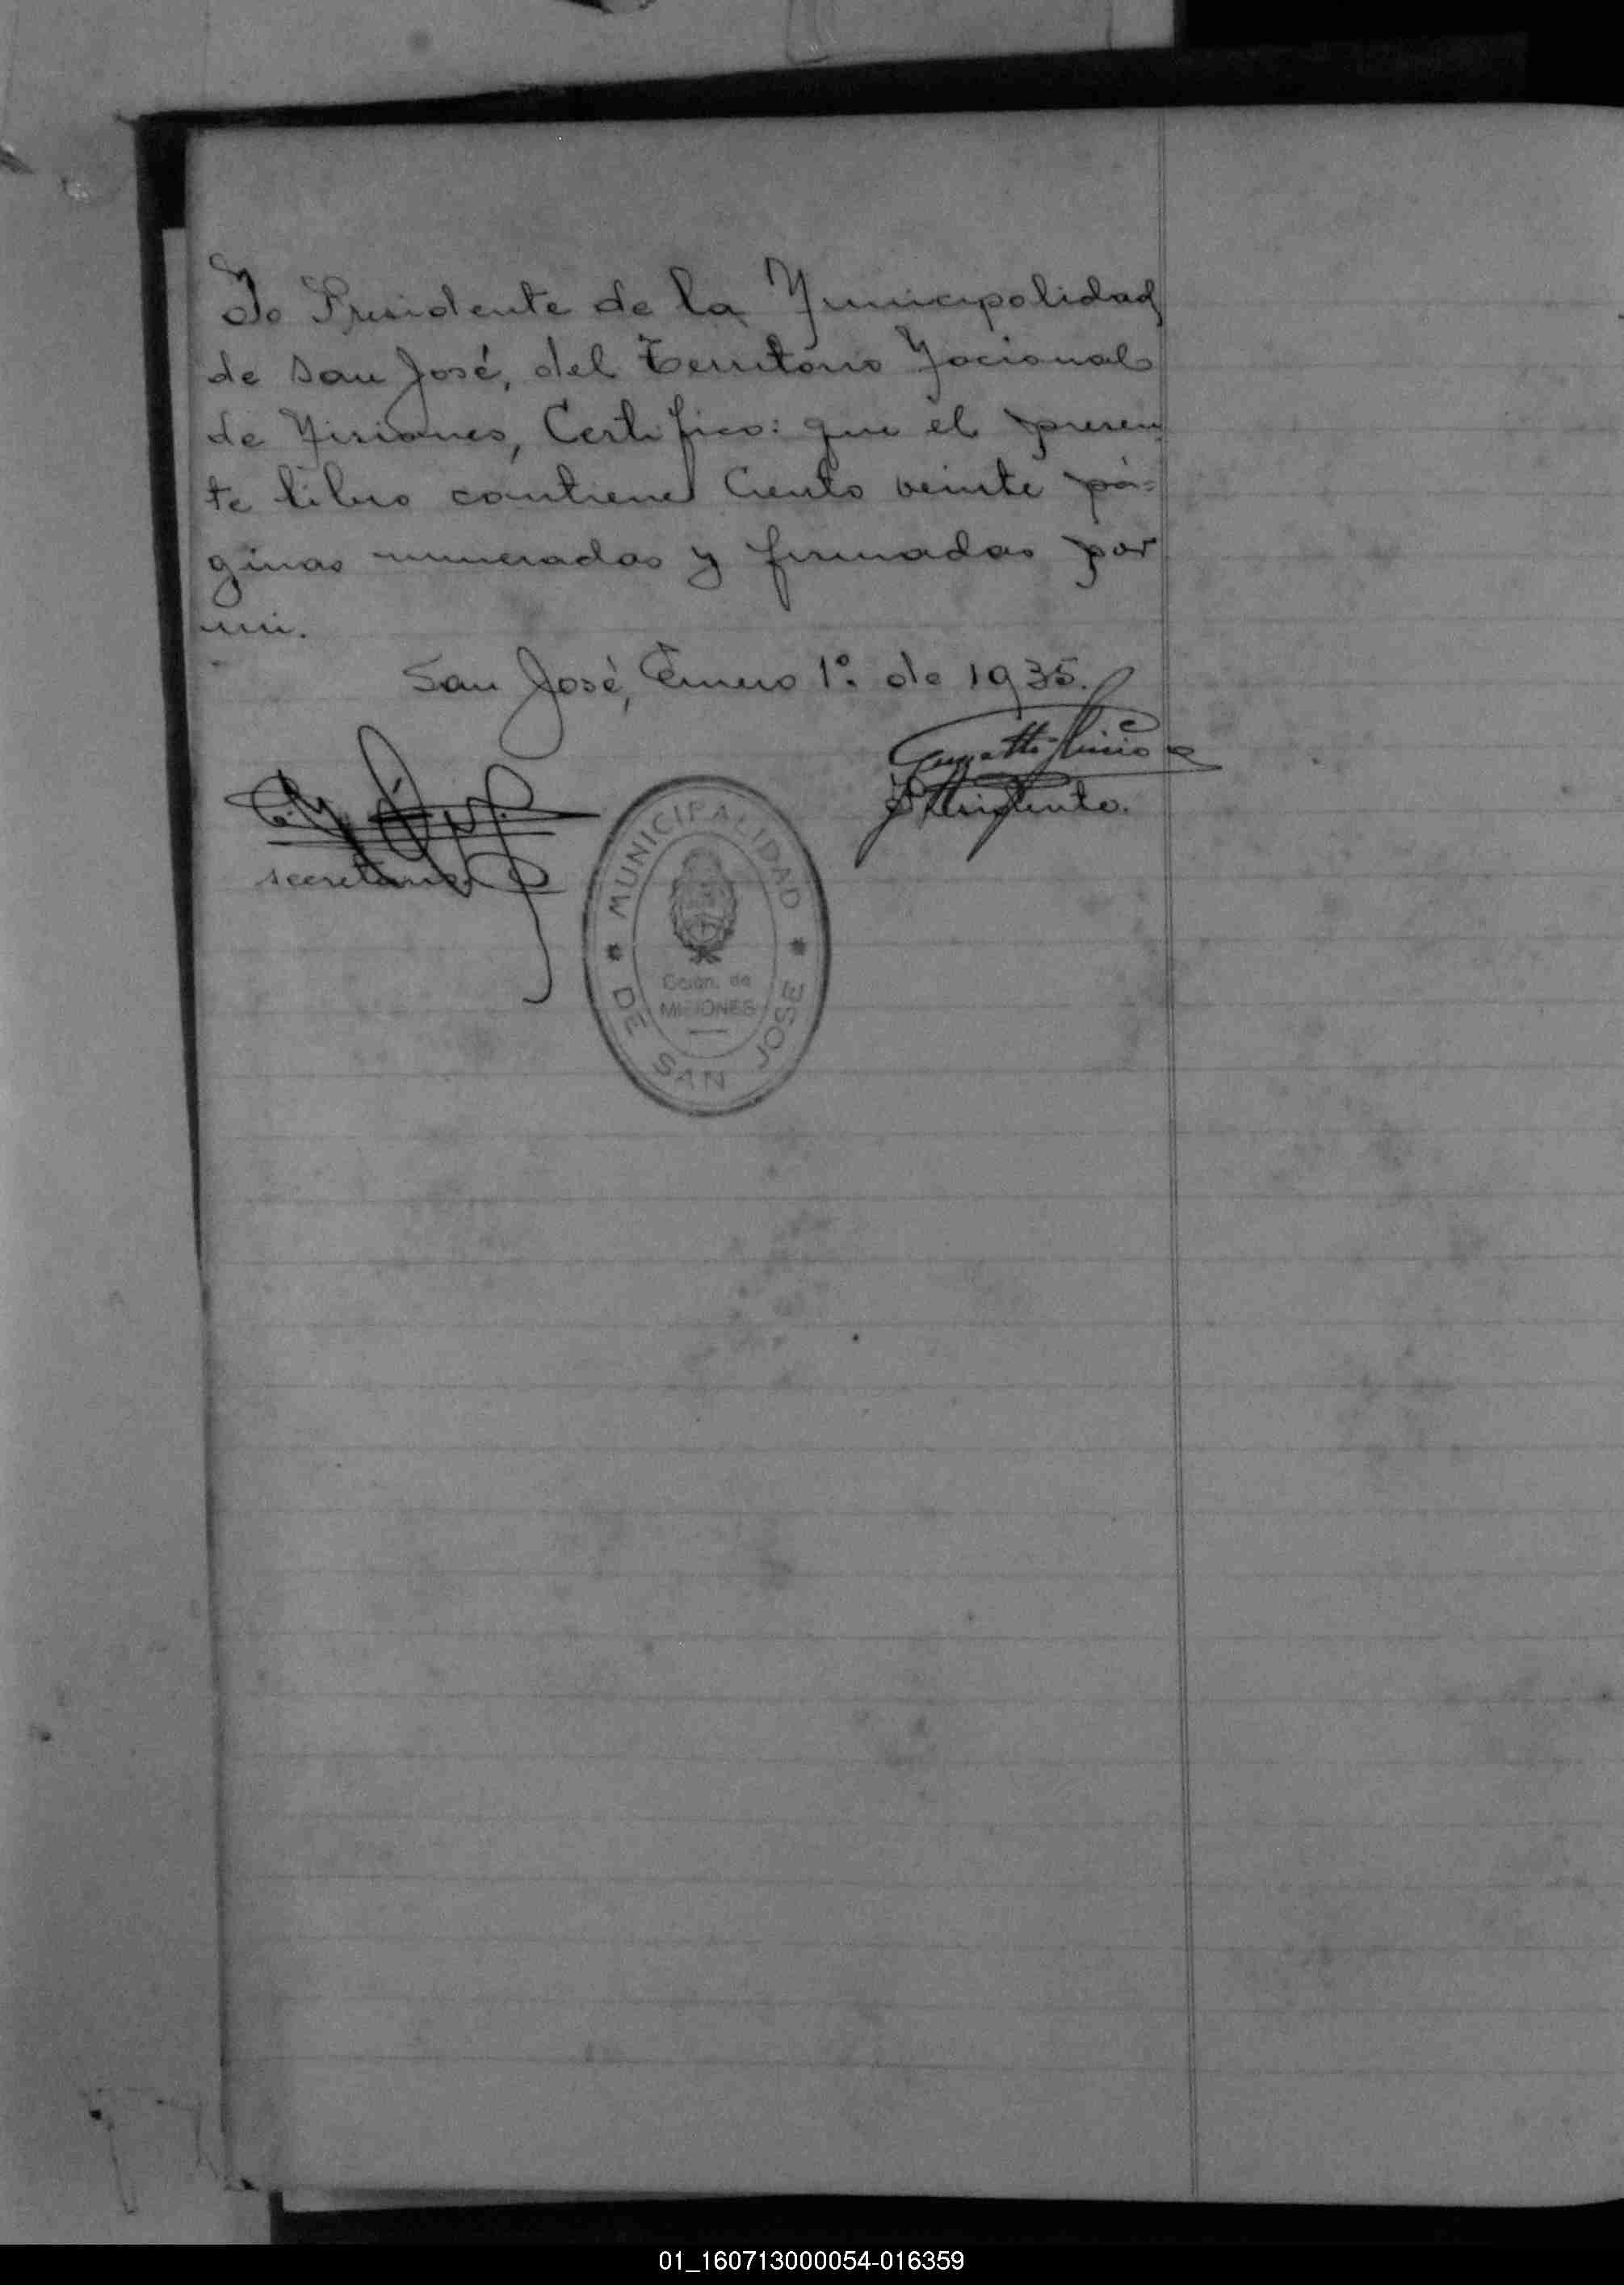 Yo Presidente de la Municipalidad
de San José, del Territorio Nacional
de Misiones, Certifico: que el presen
te libro contiene Ciento veinte pá=
ginas numeradas y firmadas por
mi.
San José, Enero 1º. de 1935.
Presidente.
secretario
MUNICIPALIDAD
DE SAN JOSE
Gción. de
MISIONES
01_160713000054-016359